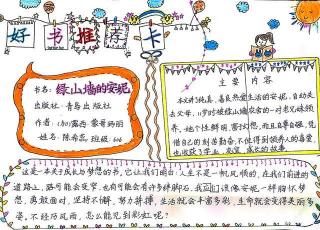 好书推荐卡
书名：绿山墙的安妮
出版社：青岛出版社
作者：(加)露西·蒙哥玛丽
姓名：陈希蕊 班级：606
主要内容
本文讲纯真、善良热爱生活的安妮，自幼失
去父母，11岁时被绿山墙农舍的一对老兄妹领
养，她个性鲜明，富于幻想，而且自尊自强，凭
借自己的刻苦勤奋，不但得到领养人的喜爱
也收获了学业、友谊、成长的故事
这是一本关于成长与梦想的书，它让我们明白：人生不是一帆风顺的，在我们前进的
道路上，路可能会变窄，也有可能会有许多绊脚石，我们应该像安妮一样胸怀梦
想，勇敢面对，坚持不懈，努力拼搏，生活就会丰富多彩，生命就会变得美丽多
姿，不经历风雨，怎么能见到彩虹呢？